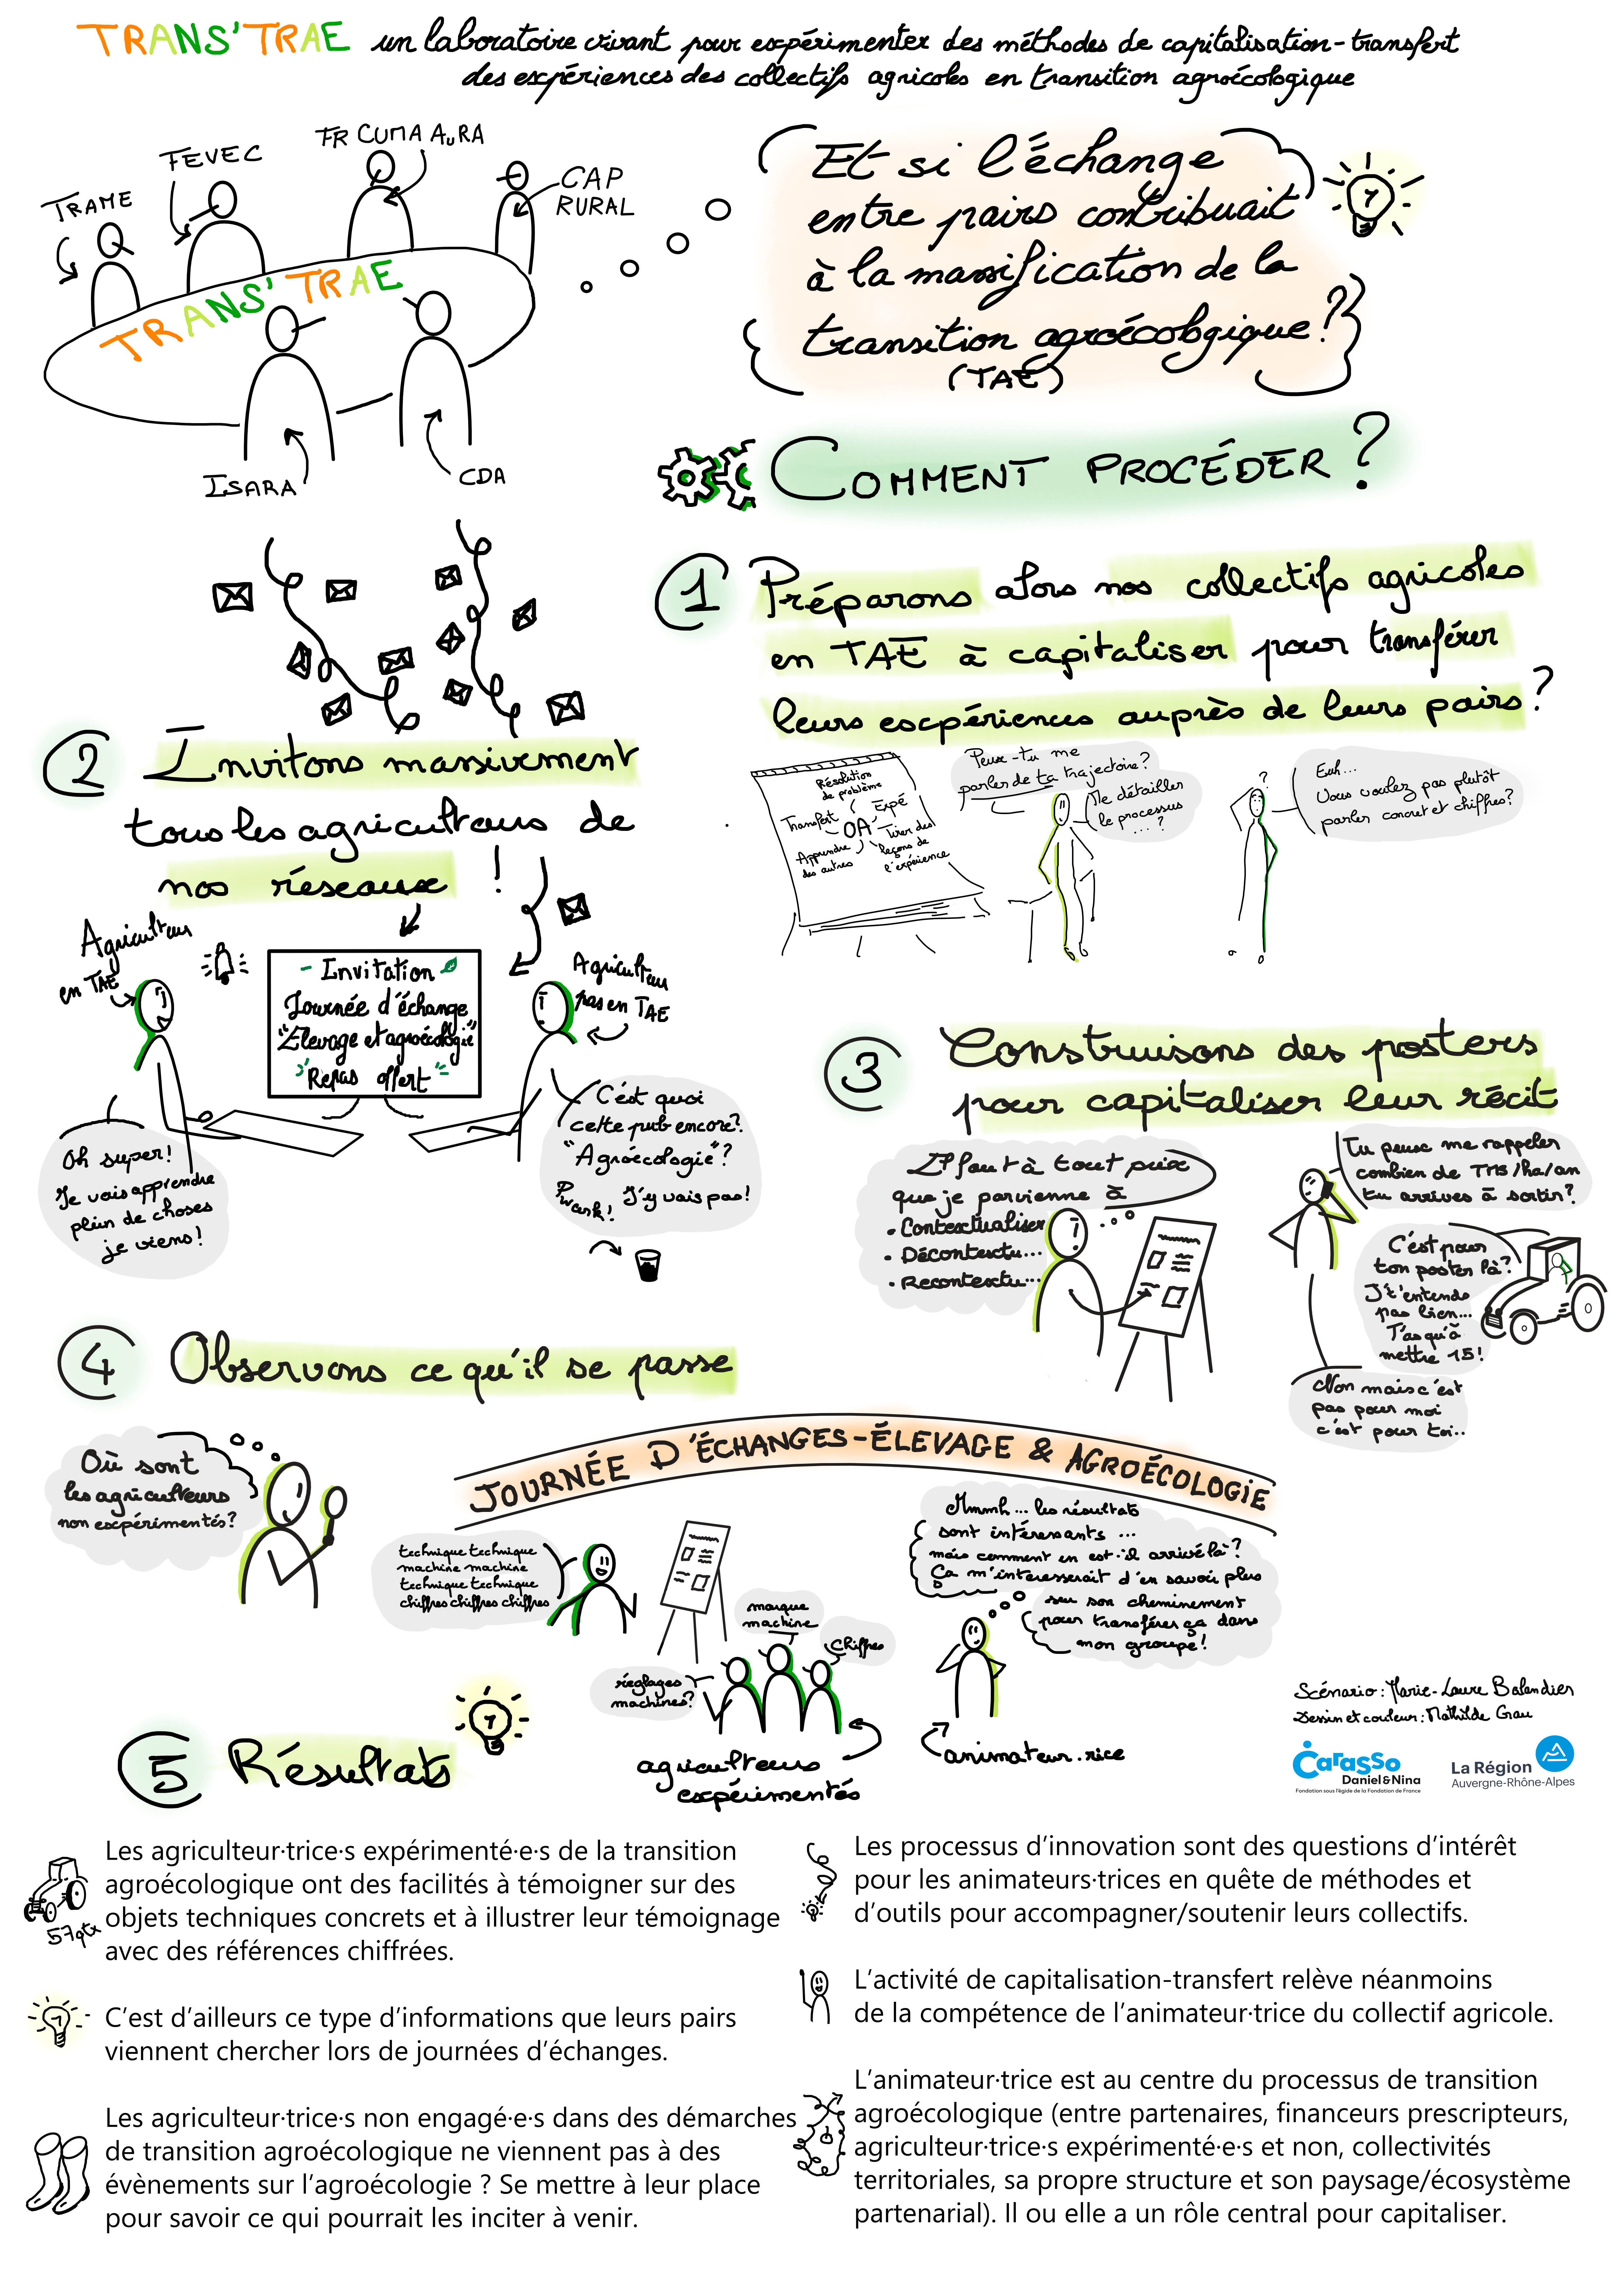 TRANS'TRAE un laboratoire vivant pour expérimenter des méthodes de capitalisation-transfert
des expériences des collectifs agricoles en transition agroécologique
TRAME
FEVEC
FR CUMA AuRA
CAP
RURAL
TRANS'TRAE
ISARA
CDA
Et si l'échange
entre pairs contribuait
à la massification de la
transition agroécologique ?
(TAE)
COMMENT PROCÉDER ?
1 Préparons alors nos collectifs agricoles
en TAE à capitaliser pour transférer
leurs expériences auprès de leurs pairs ?
Résolution
de problème
Transfert
Expé
OA
Tirer des
leçons de
l'expérience
Apprendre
des autres
Peux-tu me
parler de ta trajectoire ?
Me détailler
le processus
... ?
?
Euh...
Vous voulez pas plutôt
parler concret et chiffres ?
2 Invitons massivement
tous les agriculteurs de
nos réseaux !
Agriculteur
en TAE
- Invitation
Journée d'échange
"Elevage et agroécologie"
Repas offert
Agriculteur
pas en TAE
Oh super !
Je vais apprendre
plein de choses
je viens !
C'est quoi
cette pub encore ?
"Agroécologie" ?
Pwark ! J'y vais pas !
3 Construisons des posters
pour capitaliser leur récit
Il faut à tout prix
que je parvienne à
• Contextualiser
• Décontextu...
• Recontextu...
Tu peux me rappeler
combien de TMS/ha/an
tu arrives à sortir ?
C'est pour
ton poster là ?
J't'entends
pas bien...
T'as qu'à
mettre 15 !
Non mais c'est
pas pour moi
c'est pour toi..
4 Observons ce qu'il se passe
Où sont
les agriculteurs
non expérimentés ?
JOURNÉE D'ÉCHANGES - ÉLEVAGE & AGROÉCOLOGIE
technique technique
machine machine
technique technique
chiffres chiffres chiffres
marque
machine
chiffres
réglages
machines ?
agriculteurs
expérimentés
Mmmh... les résultats
sont intéressants ...
mais comment en est-il arrivé là ?
Ça m'intéresserait d'en savoir plus
sur son cheminement
pour transférer ça dans
mon groupe !
animateur.rice
Scénario : Marie-Laure Balandier
Dessin et couleur : Mathilde Grau
Carasso
Daniel & Nina
Fondation sous l'égide de la Fondation de France
La Région
Auvergne-Rhône-Alpes
5 Résultats
57qtx
Les agriculteur·trice·s expérimenté·e·s de la transition
agroécologique ont des facilités à témoigner sur des
objets techniques concrets et à illustrer leur témoignage
avec des références chiffrées.
C'est d'ailleurs ce type d'informations que leurs pairs
viennent chercher lors de journées d'échanges.
Les agriculteur·trice·s non engagé·e·s dans des démarches
de transition agroécologique ne viennent pas à des
évènements sur l'agroécologie ? Se mettre à leur place
pour savoir ce qui pourrait les inciter à venir.
Les processus d'innovation sont des questions d'intérêt
pour les animateurs·trices en quête de méthodes et
d'outils pour accompagner/soutenir leurs collectifs.
L'activité de capitalisation-transfert relève néanmoins
de la compétence de l'animateur·trice du collectif agricole.
L'animateur·trice est au centre du processus de transition
agroécologique (entre partenaires, financeurs prescripteurs,
agriculteur·trice·s expérimenté·e·s et non, collectivités
territoriales, sa propre structure et son paysage/écosystème
partenarial). Il ou elle a un rôle central pour capitaliser.